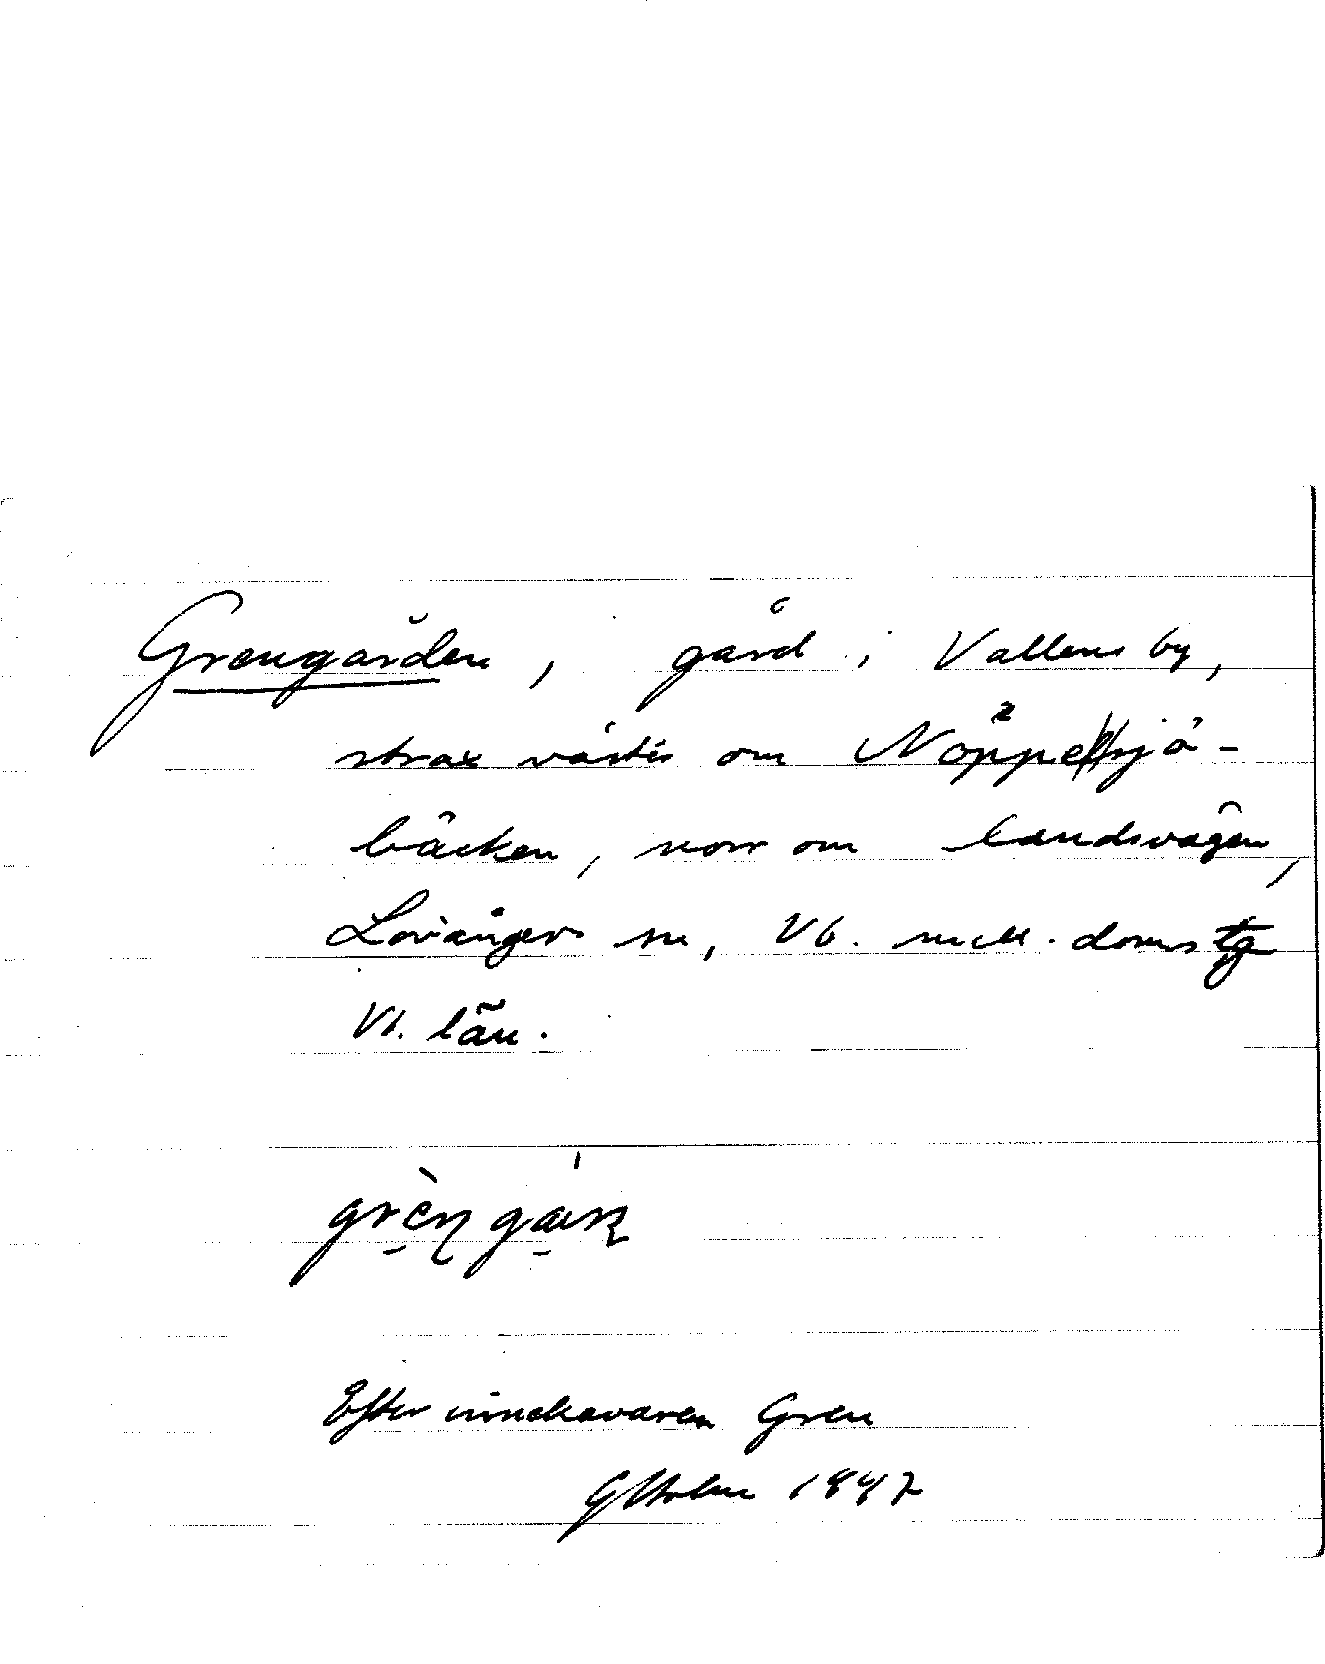 Grengården, gård i Vallens by,
strax väster om Nöppelsjö-
bäcken, norr om landsvägen,
Lövånger sn, Vb. mell. doms tg
Vb. län.
grèn gár̥n
Efter innehavaren Gren
GHolm 1947